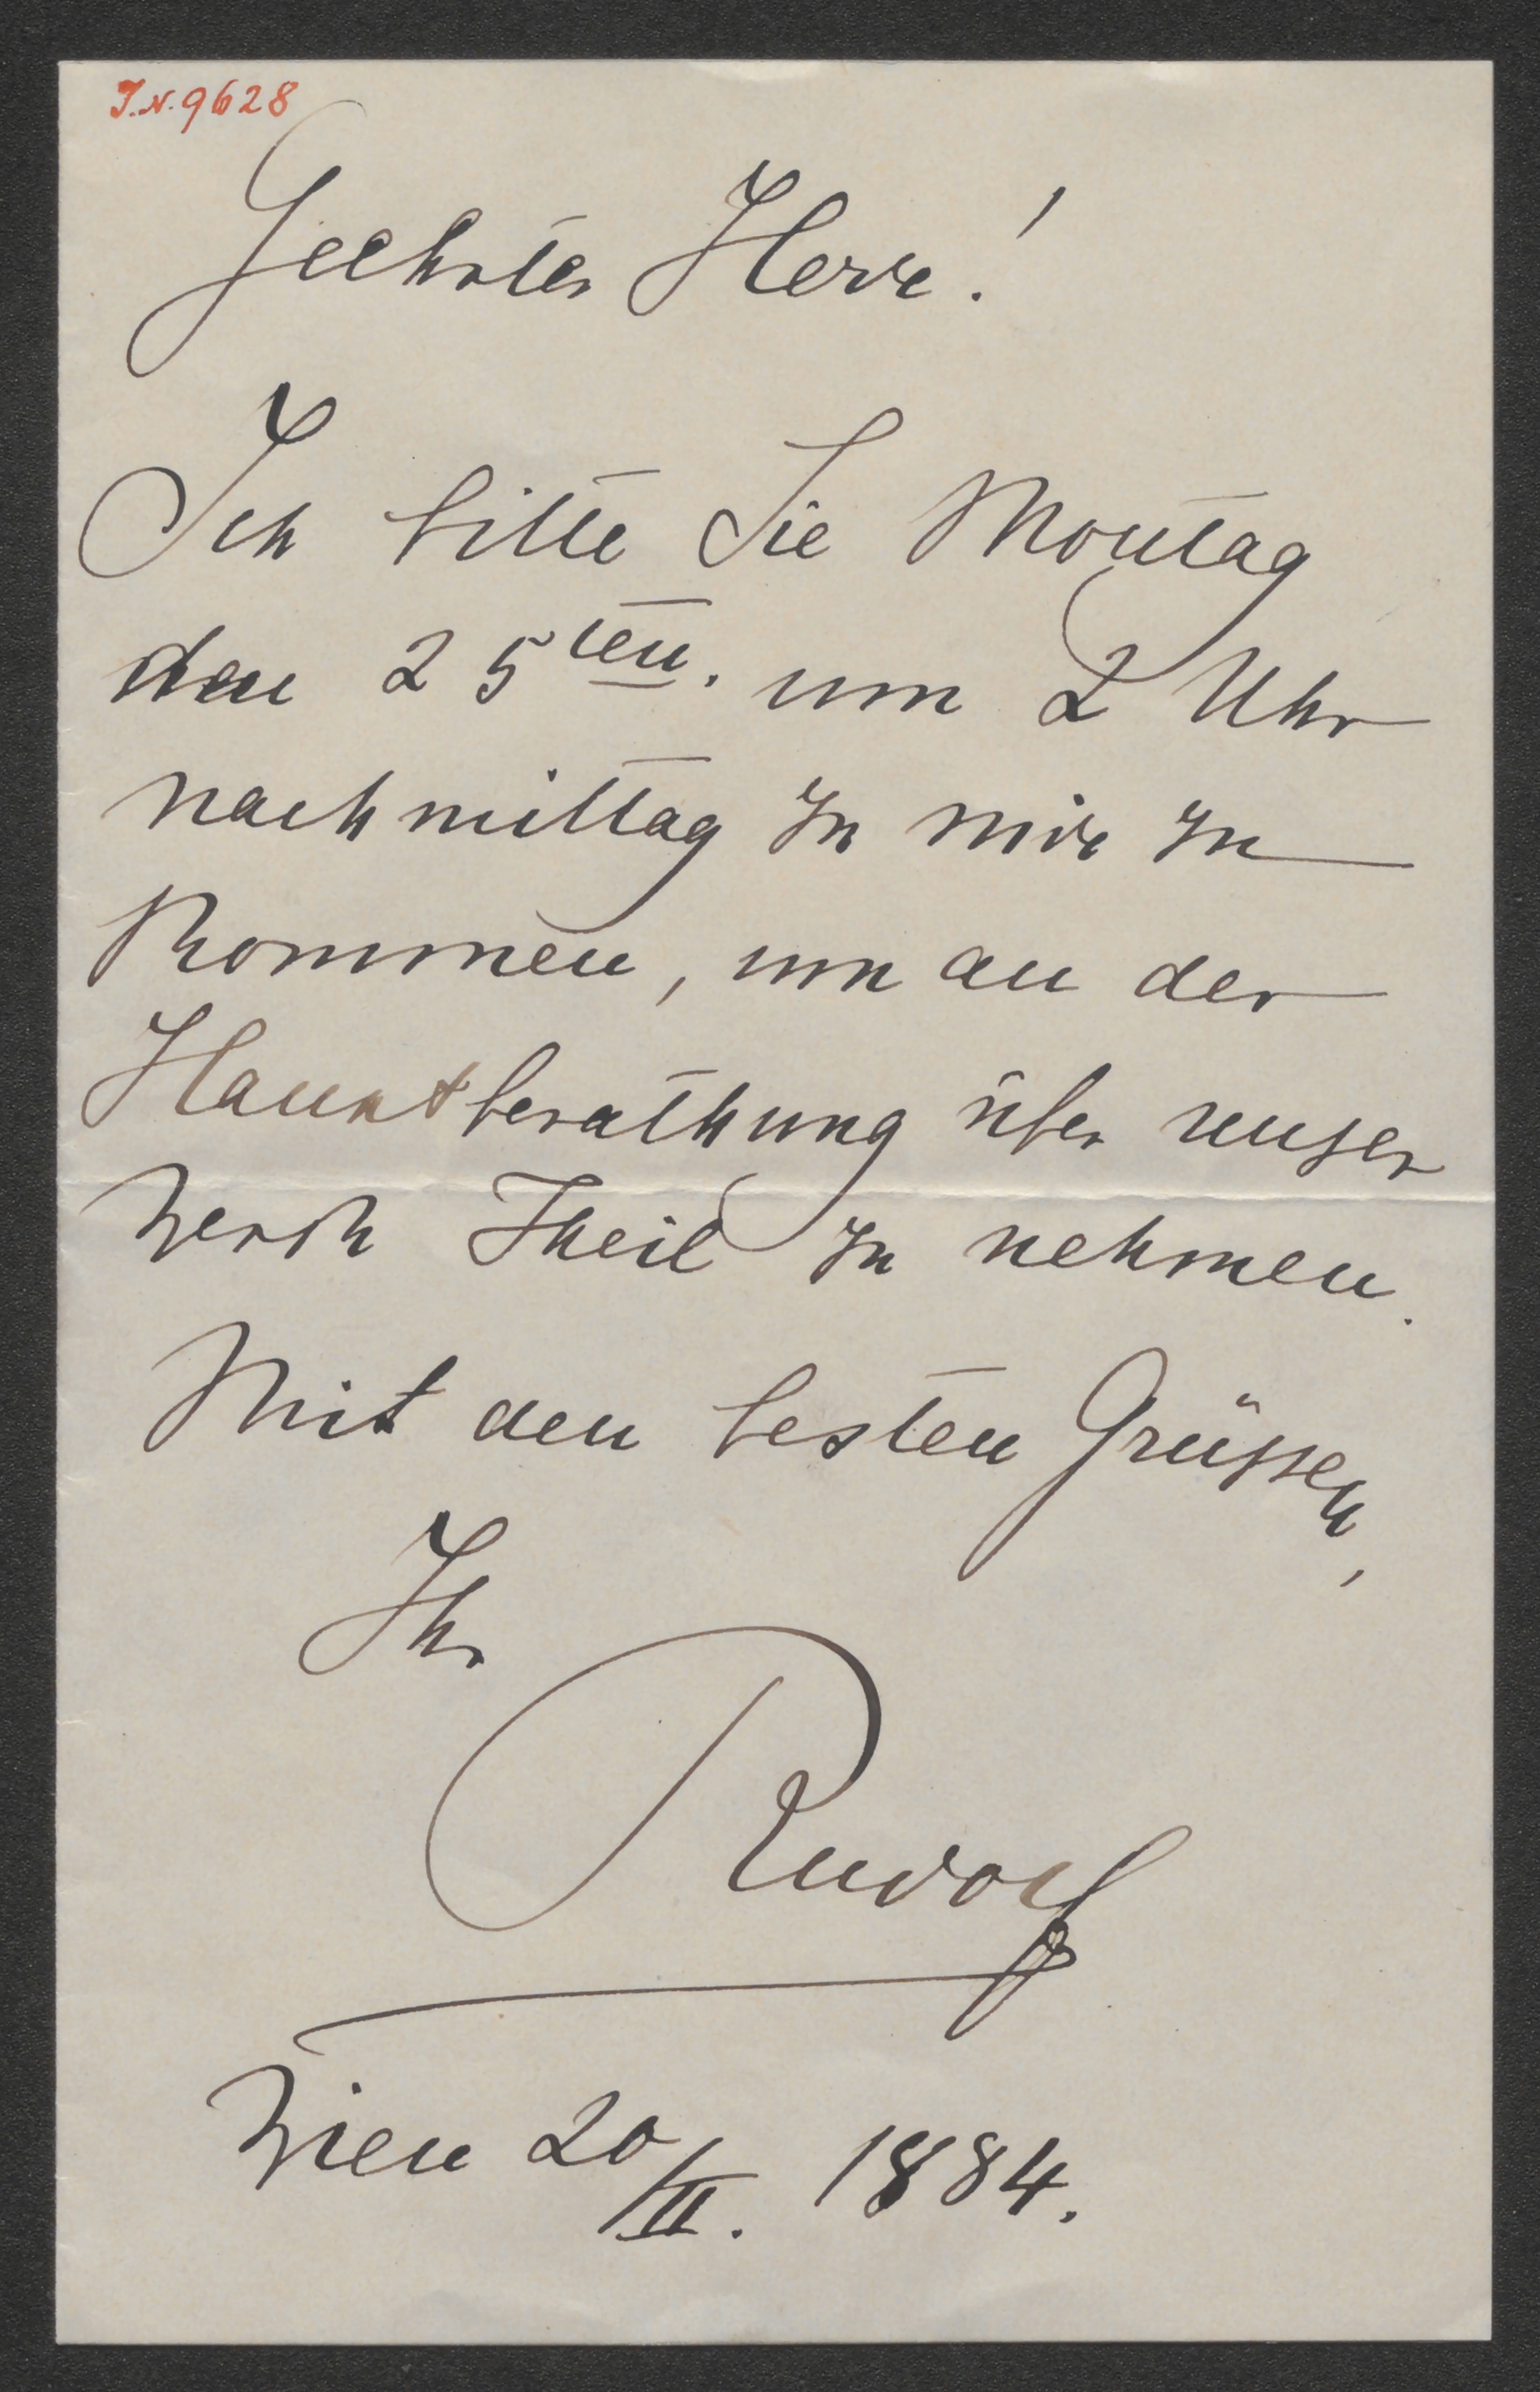 J.N. 9628
Geehrter Herr!
Ich bitte Sie Montag
den 25ten. um 2 Uhr
nachmittag zu mir zu
Kommen, um an der
Hauptberathung über unser
Werk Theil zu nehmen.
Mit den besten Grüssen,
Ihr
Rudolf
Wien 20/II. 1884.